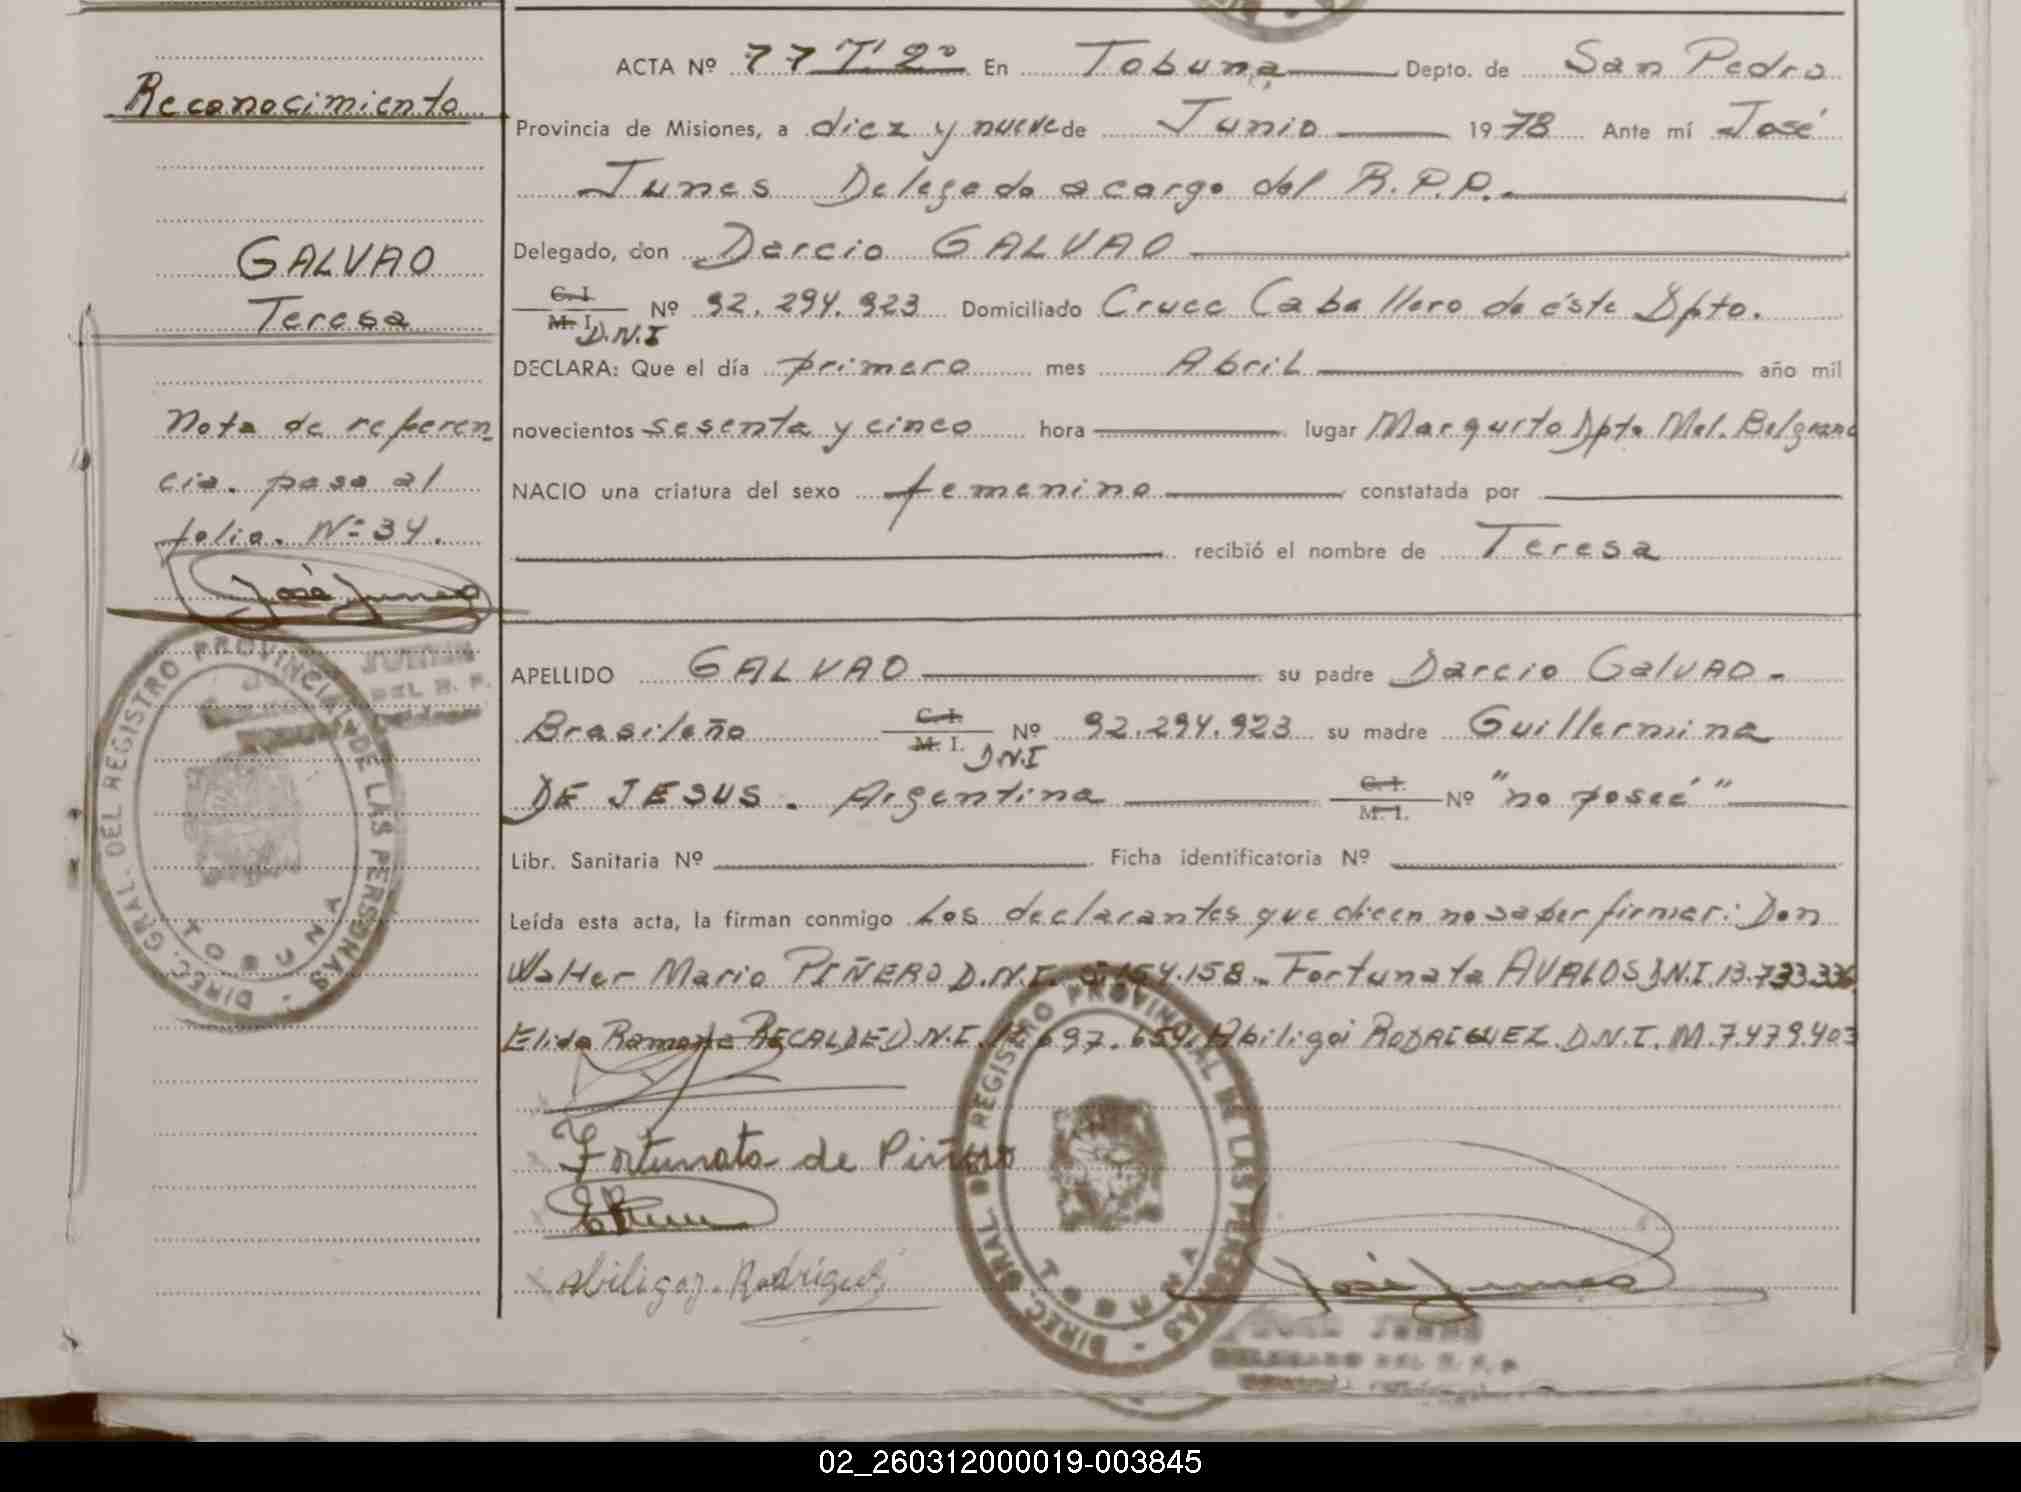 Reconocimiento
GALVAO
Teresa
Nota de referen
cia. pasa al
folio. Nº 34.
José Junes
DIREC. GRAL. DEL REGISTRO PROVINCIAL DE LAS PERSONAS -
TOBUNA
ACTA Nº 77 T. 2º En Tobuna Depto. de San Pedro
Provincia de Misiones, a diez y nueve de Junio 1978 Ante mí José
Junes Delegado a cargo del R.P.P.
Delegado, don Darcio GALVAO
C. I.
M. I. D.N.I Nº 92.294.923 Domiciliado Cruce Caballero de éste Dpto.
DECLARA: Que el día primero mes Abril año mil
novecientos sesenta y cinco hora lugar Marquito Dpto Mel. Belgrano
NACIO una criatura del sexo femenino constatada por
recibió el nombre de Teresa
APELLIDO GALVAO su padre Darcio GalVAO -
Brasileño C. I. M. I. D.N.I Nº 92.294.923 su madre Guillermina
DE JESUS. Argentina C. I. M. I. Nº "no poseé"
Libr. Sanitaria Nº Ficha identificatoria Nº
Leída esta acta, la firman conmigo Los declarantes que dicen no saber firmar: Don
Walter Mario PIÑERO D.N.I. 154.158. Fortunata AVALOS D.N.I. 13.733.336
Elida Ramona RECALDE D.N.I. 697.659. Abiligoi RODRIGUEZ. D.N.I. M.7.479.403
Fortunata de Piñero
Abiligoi. Rodriguez
José Junes
DIREC. GRAL. DEL REGISTRO PROVINCIAL DE LAS PERSONAS -
TOBUNA
DELEGADO DEL R. P. P.
02_260312000019-003845